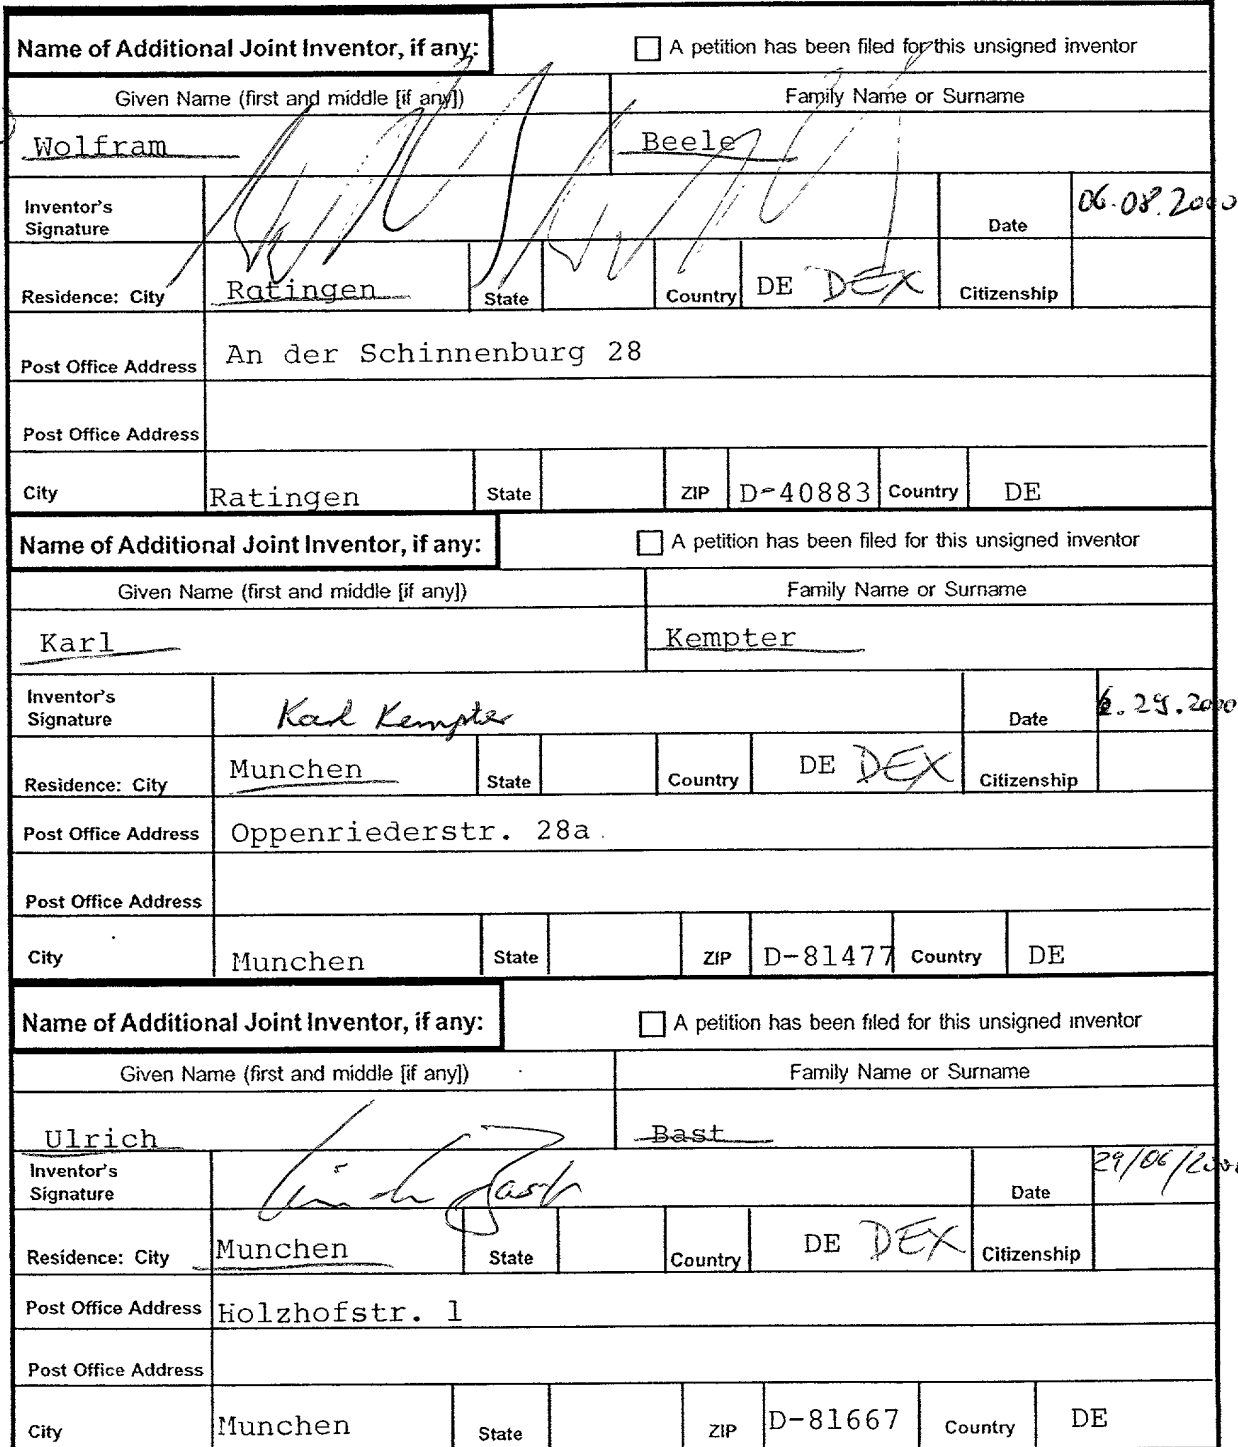 Name of Additional Joint Inventor, if any: A petition has been filed for this unsigned inventor
Given Name (first and middle [if any]) Family Name or Surname
Wolfram Beele
Inventor's Signature Date 06.08.2000
Residence: City Ratingen State Country DE DEX Citizenship
Post Office Address An der Schinnenburg 28
Post Office Address
City Ratingen State ZIP D-40883 Country DE
Name of Additional Joint Inventor, if any: A petition has been filed for this unsigned inventor
Given Name (first and middle [if any]) Family Name or Surname
Karl Kempter
Inventor's Signature Karl Kempter Date 6.29.2000
Residence: City Munchen State Country DE DEX Citizenship
Post Office Address Oppenriederstr. 28a
Post Office Address
City Munchen State ZIP D-81477 Country DE
Name of Additional Joint Inventor, if any: A petition has been filed for this unsigned inventor
Given Name (first and middle [if any]) Family Name or Surname
Ulrich Bast
Inventor's Signature Ulrich Bast Date 29/06/2000
Residence: City Munchen State Country DE DEX Citizenship
Post Office Address Holzhofstr. 1
Post Office Address
City Munchen State ZIP D-81667 Country DE